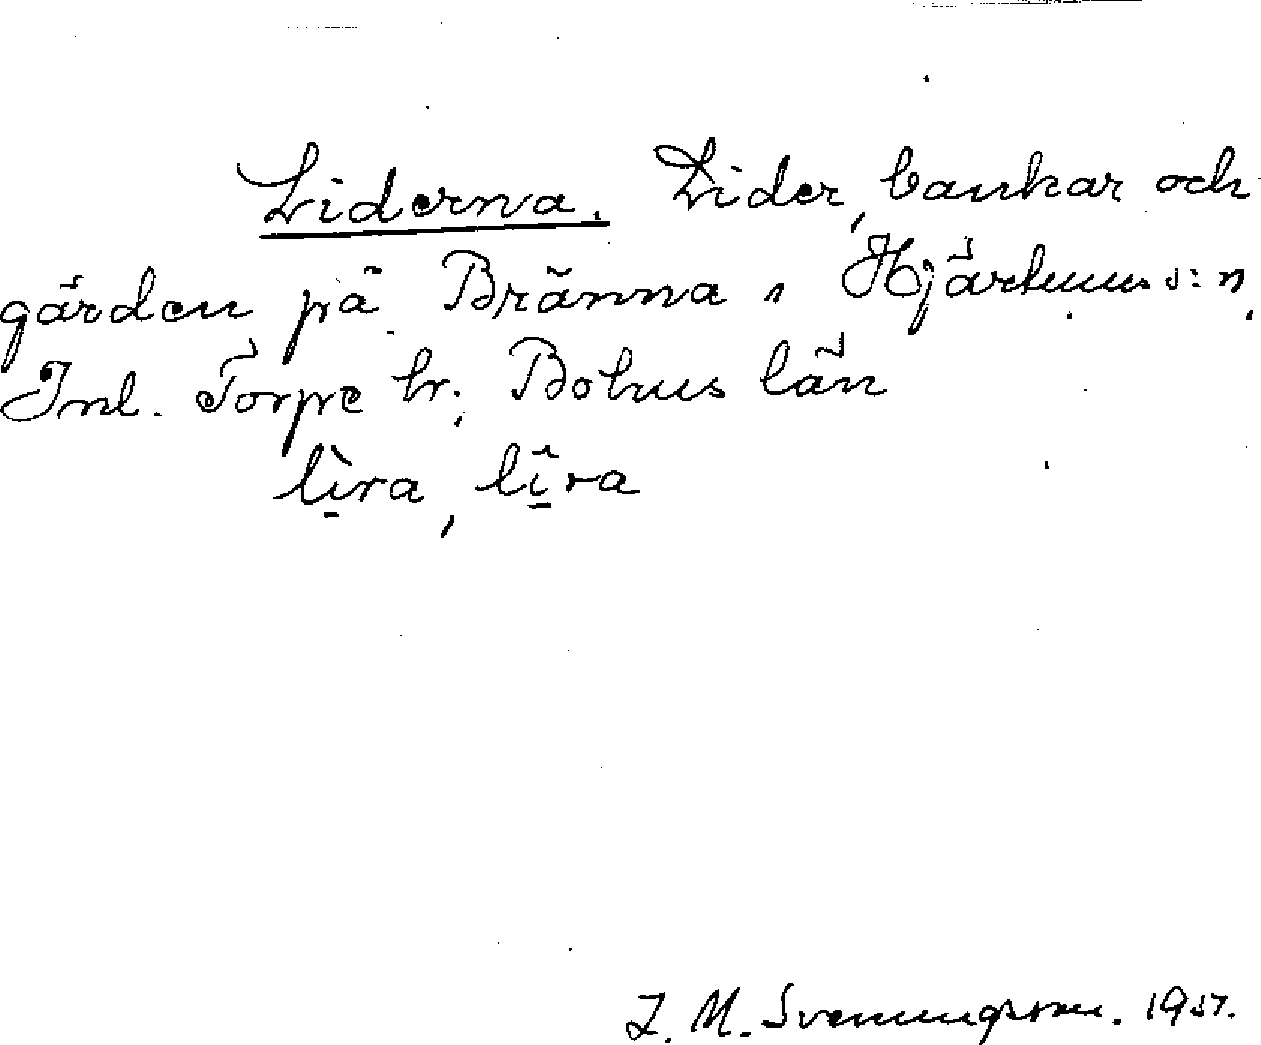 Liderna. Lider, bankar och
gärden på Bränna i Hjärtums s:n,
Inl. Torpe hr; Bohus län
lìra, lîra
J. M. Svenningsson. 1957.